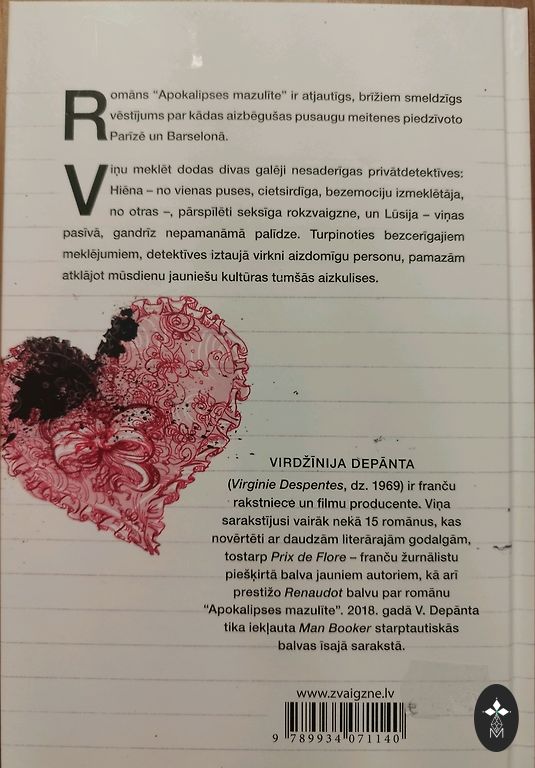 Romāns “Apokalipses mazulīte” ir atjautīgs, brīžiem smeldzīgs
vēstījums par kādas aizbēgušas pusaugu meitenes piedzīvoto
Parīzē un Barselonā.
Viņu meklēt dodas divas galēji nesaderīgas privātdetektīves:
Hiēna – no vienas puses, cietsirdīga, bezemociju izmeklētāja,
no otras –, pārspīlēti seksīga rokzvaigzne, un Lūsija – viņas
pasīvā, gandrīz nepamanāmā palīdze. Turpinoties bezcerīgajiem
meklējumiem, detektīves iztaujā virkni aizdomīgu personu, pamazām
atklājot mūsdienu jauniešu kultūras tumšās aizkulises.
VIRDŽĪNIJA DEPĀNTA
(Virginie Despentes, dz. 1969) ir franču
rakstniece un filmu producente. Viņa
sarakstījusi vairāk nekā 15 romānus, kas
novērtēti ar daudzām literārajām godalgām,
tostarp Prix de Flore – franču žurnālistu
piešķirtā balva jauniem autoriem, kā arī
prestižo Renaudot balvu par romānu
“Apokalipses mazulīte”. 2018. gadā V. Depānta
tika iekļauta Man Booker starptautiskās
balvas īsajā sarakstā.
www.zvaigzne.lv
9 789934 071140
M